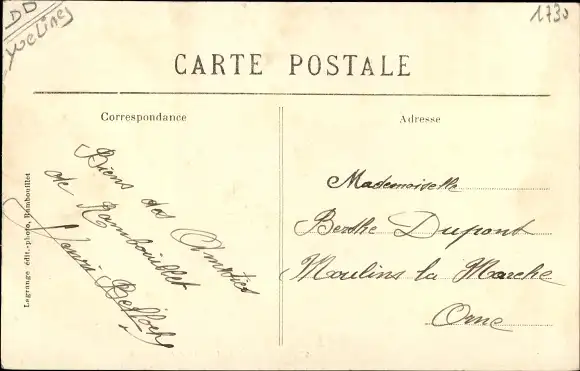 DD
Yvelines
1730
CARTE POSTALE
Correspondance
Adresse
Biens des Amitiés
de Rambouillet
Henri
Mademoiselle
Berthe Dupont
Moulins la Marche
Orne
Lagrange édit.-photo, Rambouillet